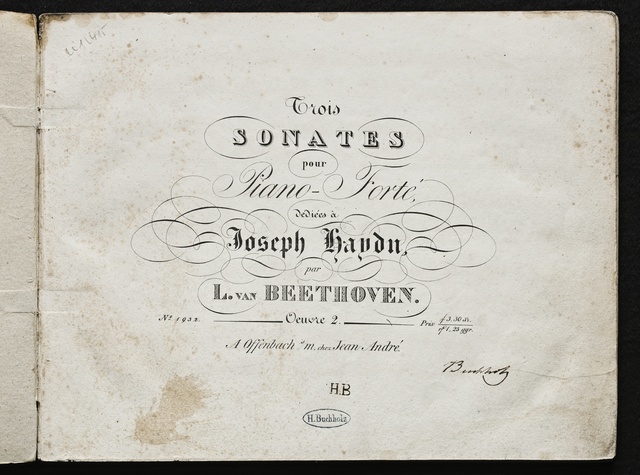 Trois
SONATES
pour
Piano-Forté,
dediées à
Joseph Haydn,
par
L. VAN BEETHOVEN.
Oeuvre 2.
Prix
A Offenbach s/m. chez Jean André.
Buchholz
H.B
H. Buchholz